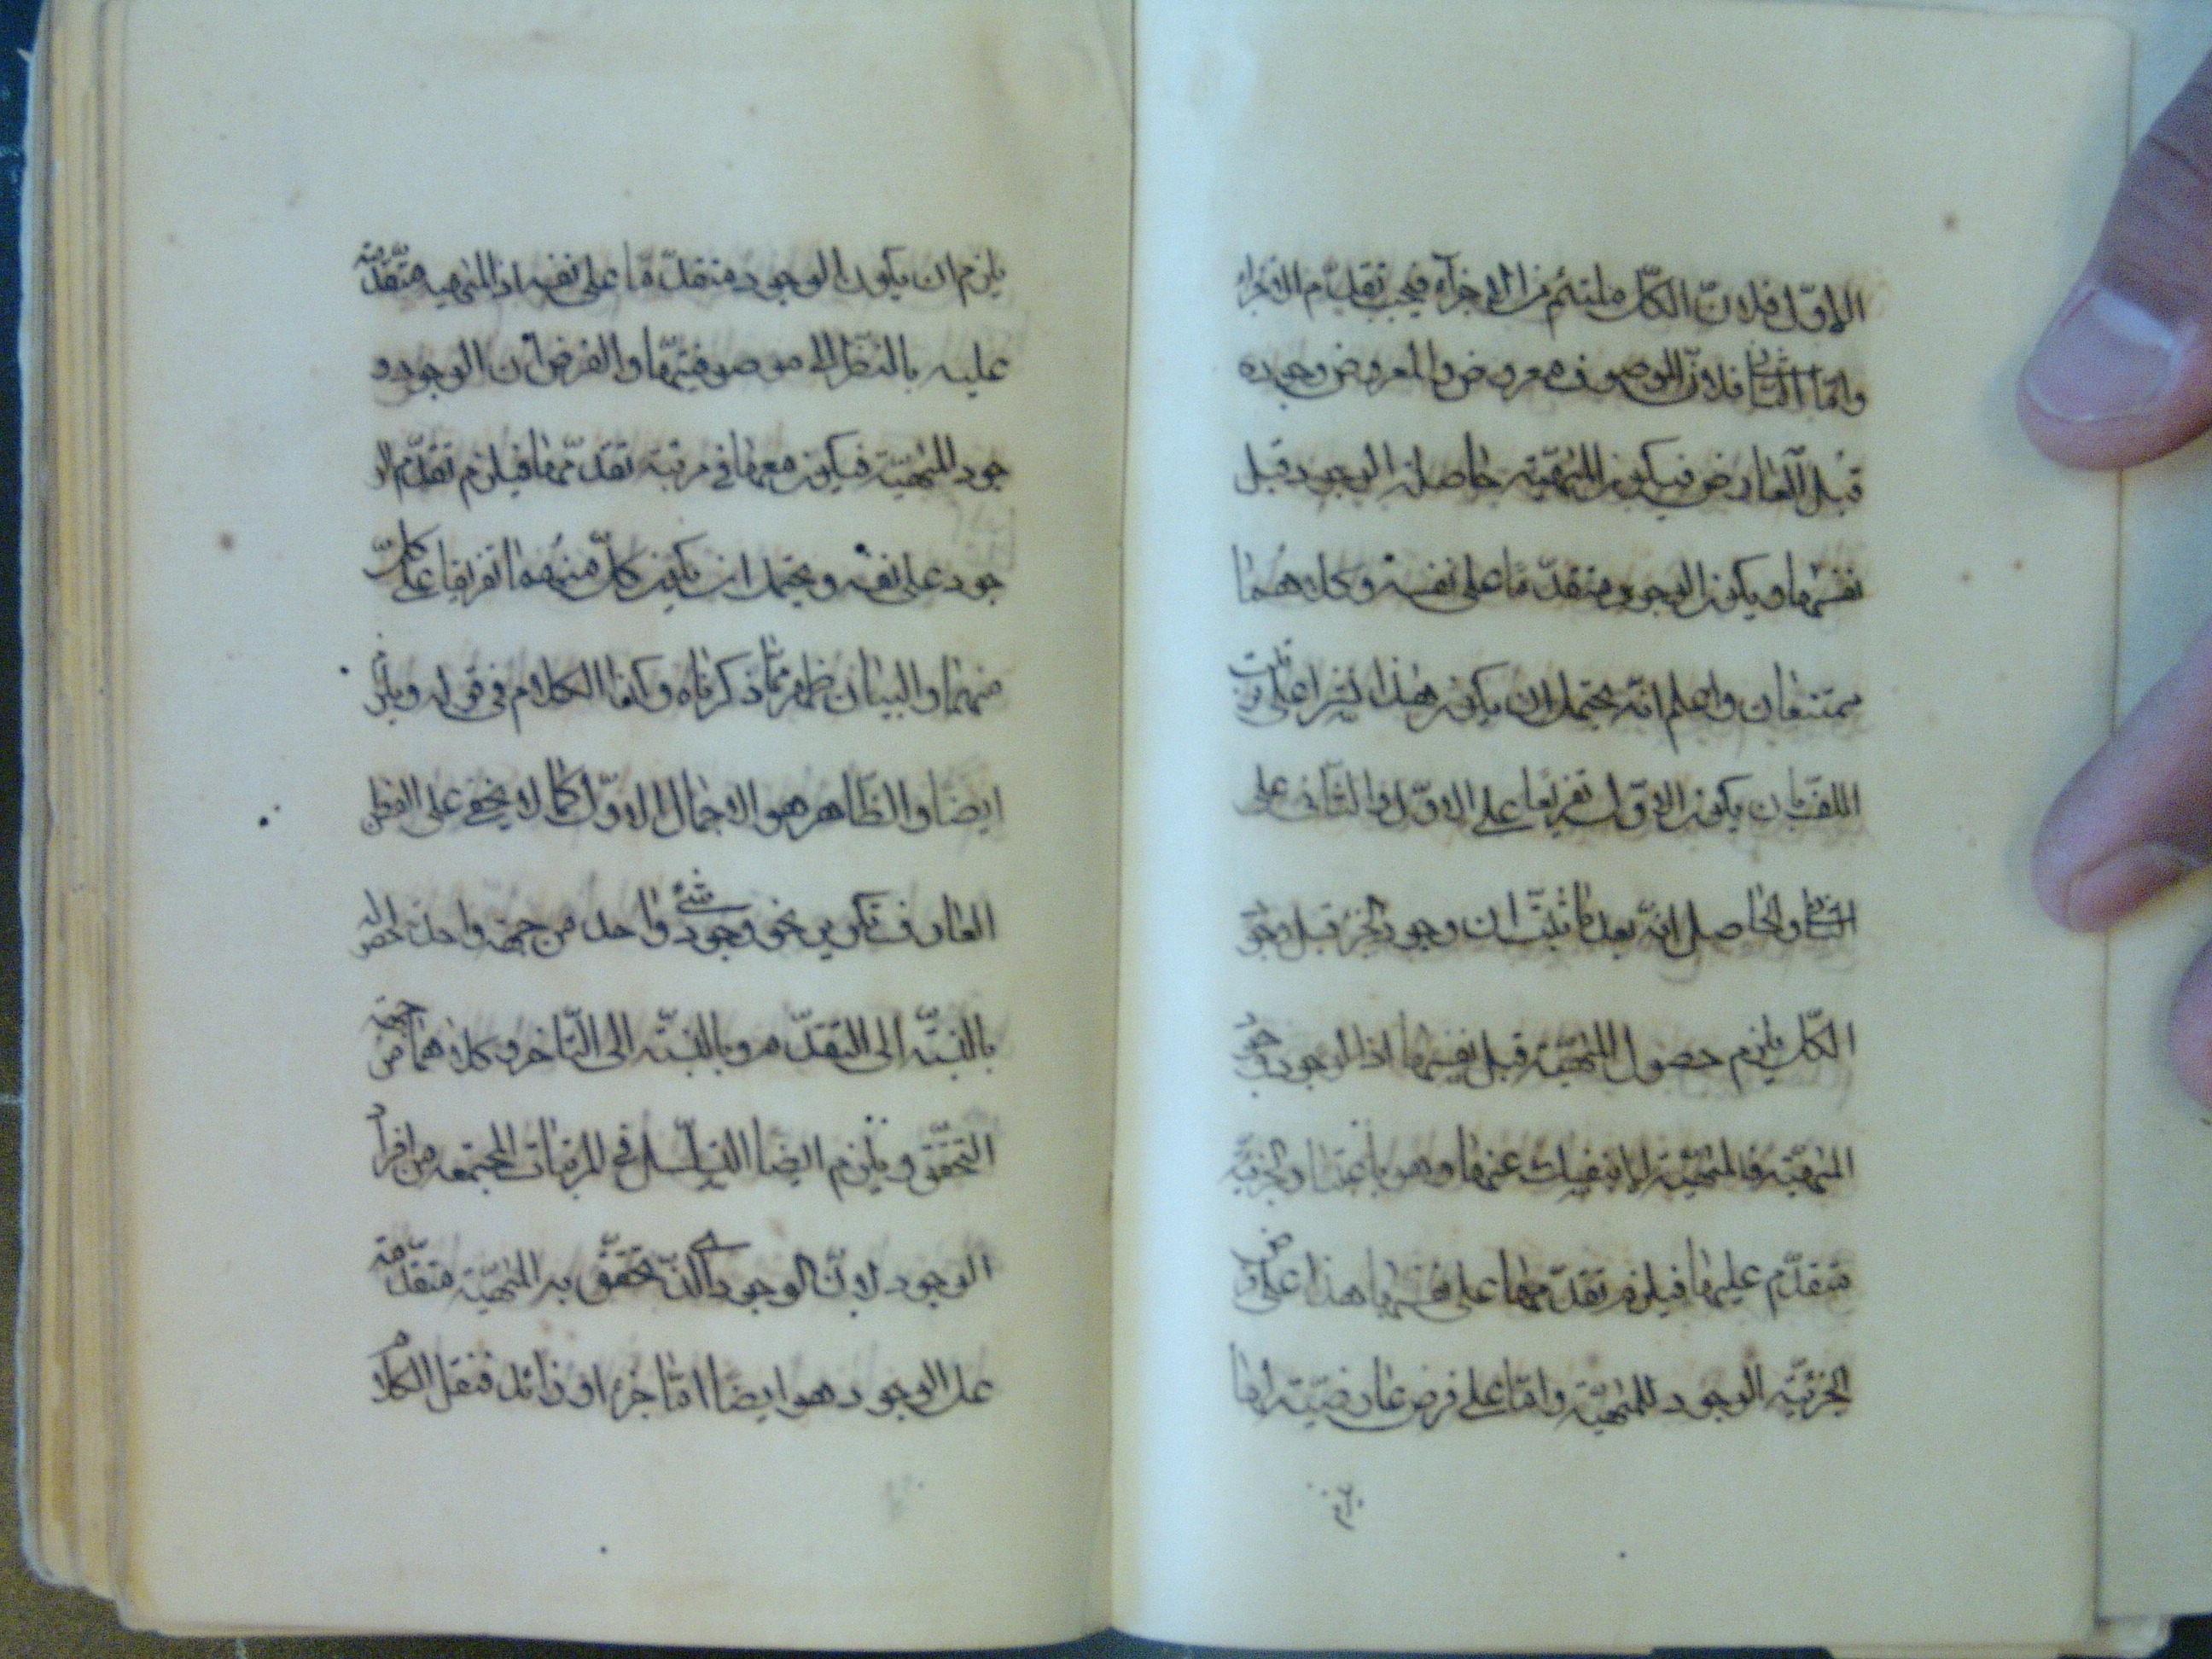 الاوّل فلانّ الكلّ ملتئم من الاجزآء فيجب تقدّم الاجزاء
وامّا الثانى فلانّ الموصوف معروض والمعروض وجوده
قبل العارض فيكون المهيّة حاصلة الوجود قبل
نفسها ويكون الوجود متقدّما على نفسه وكلاهما
ممتنعان واعلم انّه يحتمل ان يكون هذا نشرا على ترتيب
اللف بان يكون الاوّل تفريعا على الاوّل والثانى على
الثانى والحاصل انّه بعد ما ثبت ان وجود الجزء قبل وجود
الكلّ يلزم حصول المهيّة قبل نفسها اذ الوجود جزء
المهيّة فالمهيّة لا ينفك عنها وهو باعتبار الجزئيّة
متقدّم عليها فيلزم تقدّمها على نفسها هذا على فرض
الجزئيّة الوجود للمهيّة وامّا على فرض عارضيّته لها
يلزم ان يكون الوجود متقدّما على نفسه اذ المهية متقدّمة
عليه بالنظر الى موصوفيّتها والفرض ان الوجود و
جود المهيّة فيكون معها فى مرتبة تقدّمها فيلزم تقدّم الو
جود على نفسه ويحتمل ان يكون كلّ منهما تفريعا على كلّ
منهما والبيان ظهر ممّا ذكرناه وكذا الكلام فى قوله ويلزم
ايضا والظاهر هو الاجمال الاوّل كما لا يخفى على الفطن
العارف تكرير نحو وجود شئ واحد من جهة واحدة
بالنسبة الى التقدّم وبالنسبة الى التاخر وكلاهما من جهة
التحقّق ويلزم ايضا التسلسل فى المرتبات المجتمعة من افراد
الوجود لانّ الوجود الذى تحقّق به المهيّة متقدّمة
على الوجود هو ايضا امّا جزء او زائد فننقل الكلام